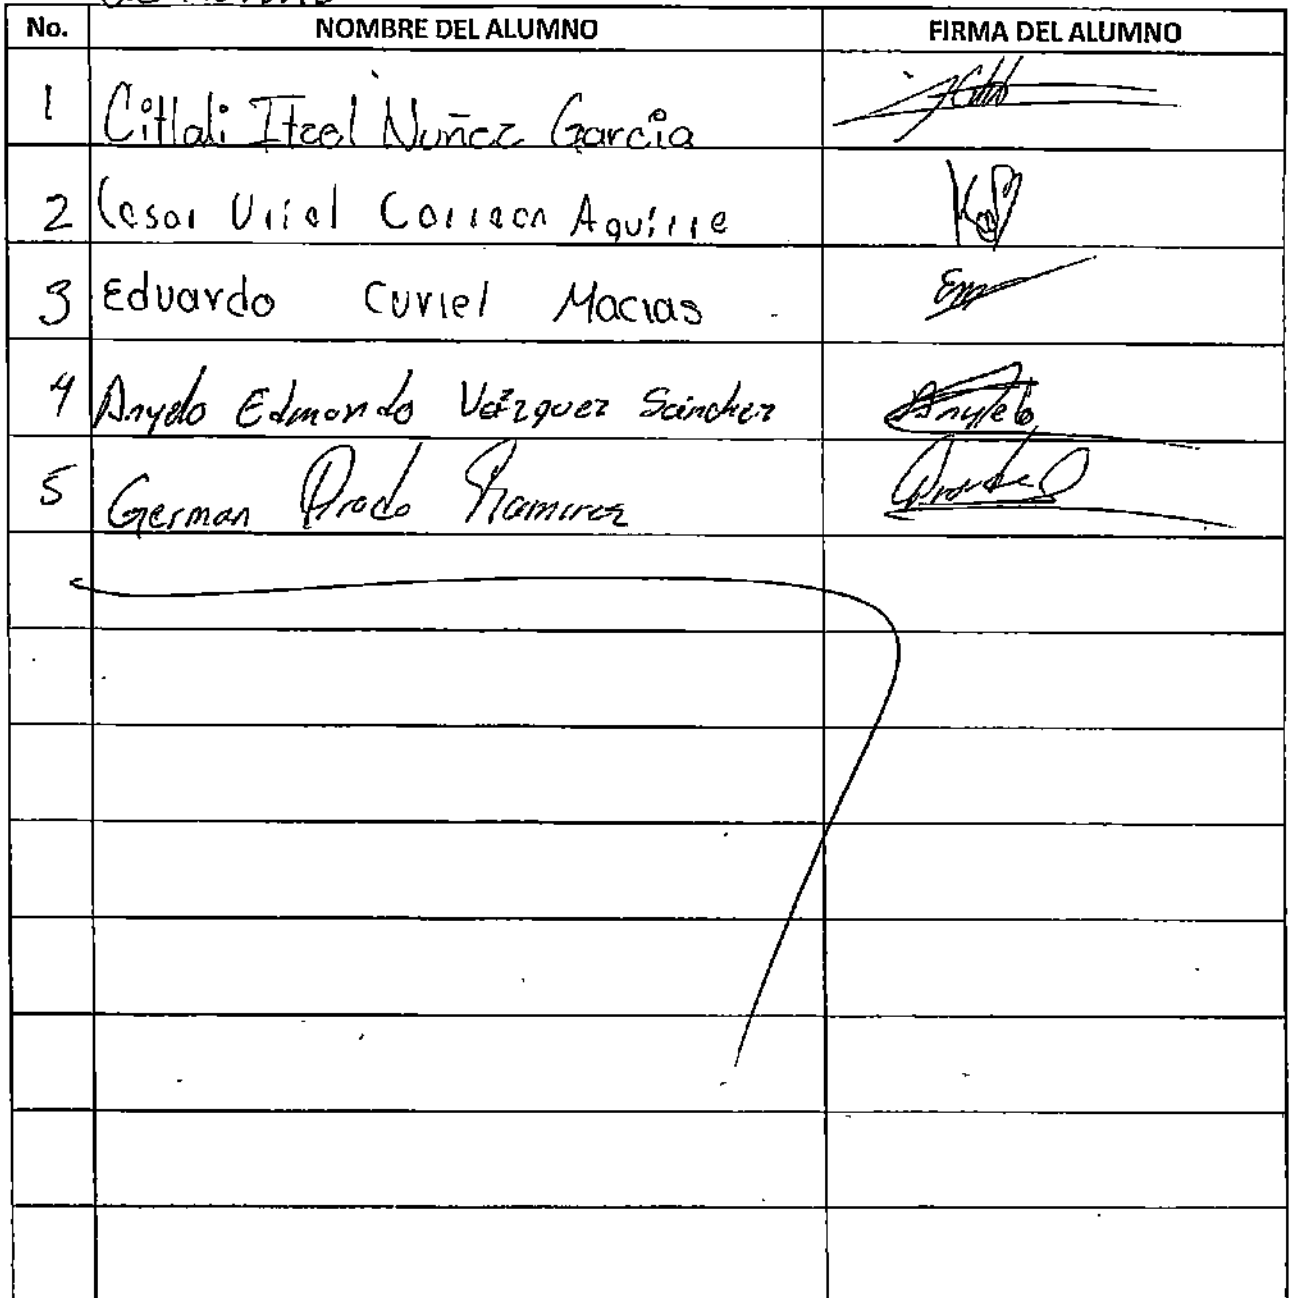 No. NOMBRE DEL ALUMNO FIRMA DEL ALUMNO
1 Citlali Itzel Nuñez García
2 Cesar Uriel Correon Aguirre
3 Eduardo Curiel Macias
4 Anyelo Edmundo Vázquez Sánchez Anyelo
5 German Prado Ramirez